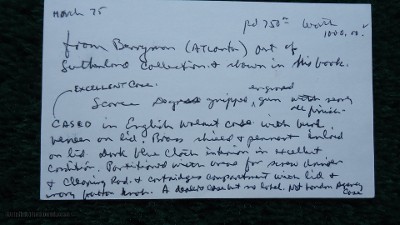 March 75
pd 750= Worth
1000.00.
from Berryman (ATLANTA) out of
Sutherland Collection & shown in his book.
EXCELLENT Case.
engraved
Scarce gripped, gun with
finish.
CASED in English walnut case with burl
veneer on lid. Brass shield & pennant inlaid
on lid dark blue cloth interior in excellent
condition. Partitioned with areas for screw driver
& Cleaning Rod. & cartridges compartment with lid &
ivory button knob. A dealers case but no label. Not London Agency
Case